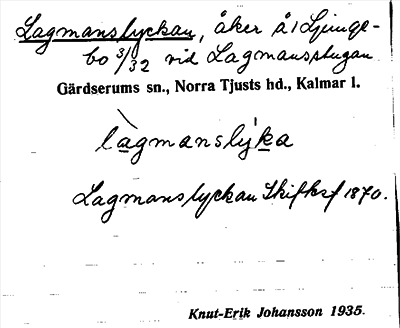 Lagmanslyckan, åker å Ljunge-
bo 3/32 vid Lagmansstugan
Gärdserums sn., Norra Tjusts hd., Kalmar l.
làgmanslýka
Lagmanslyckan Skifksf 1870.
Knut-Erik Johansson 1935.